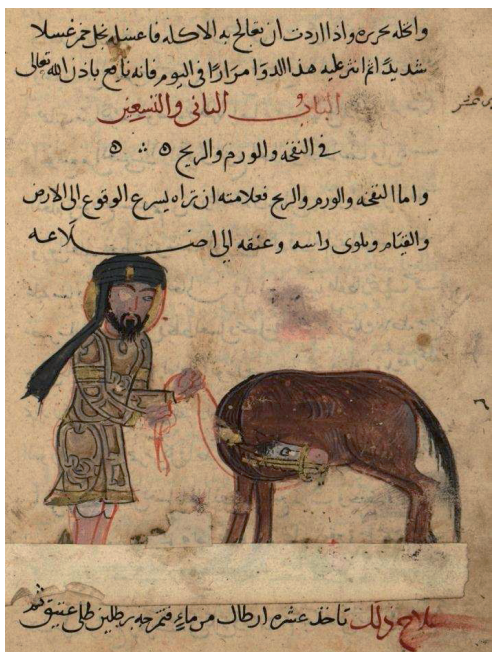 وانخله بحريره واذا اردت ان تعالج به الاكله فاغسله بخل خمر غسلا
شديدًا ثم انثر عليه هذا الدوا مرارًا في اليوم فانه نافع باذن الله تعالى
الباب الثاني والتسعين
في النفخه والورم والريح
واما النفخه والورم والريح فعلامته ان تراه يسرع الوقوع الى الارض
والقيام ويلوى راسه وعنقه الى اضلاعه
علاج ذلك تاخذ عشره ارطال من ماء فتمزجه برطلين طلى عتيق ثم